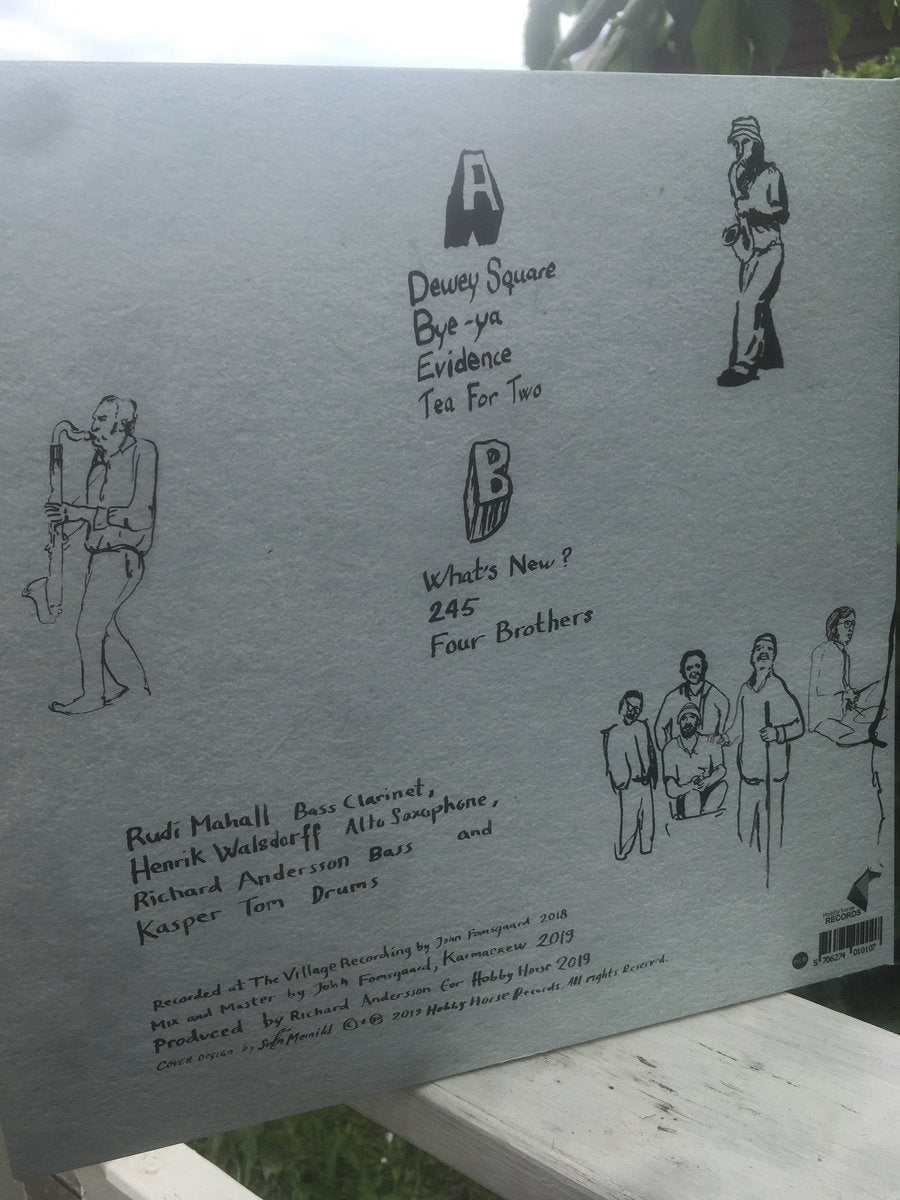 A
Dewey Square
Bye-ya
Evidence
Tea For Two
B
What's New?
245
Four Brothers
Rudi Mahall Bass Clarinet,
Henrik Walsdorff Alto Saxophone,
Richard Andersson Bass and
Kasper Tom Drums
Recorded at The Village Recording by John Fomsgaard 2018
Mix and Master by John Fomsgaard, Karmacrew 2019
Produced by Richard Andersson for Hobby Horse 2019
Cover design by Sofn Meinild © + ℗ 2019 Hobby Horse Records. All rights Reserved.
Hobby horse
RECORDS
5 706274 010107